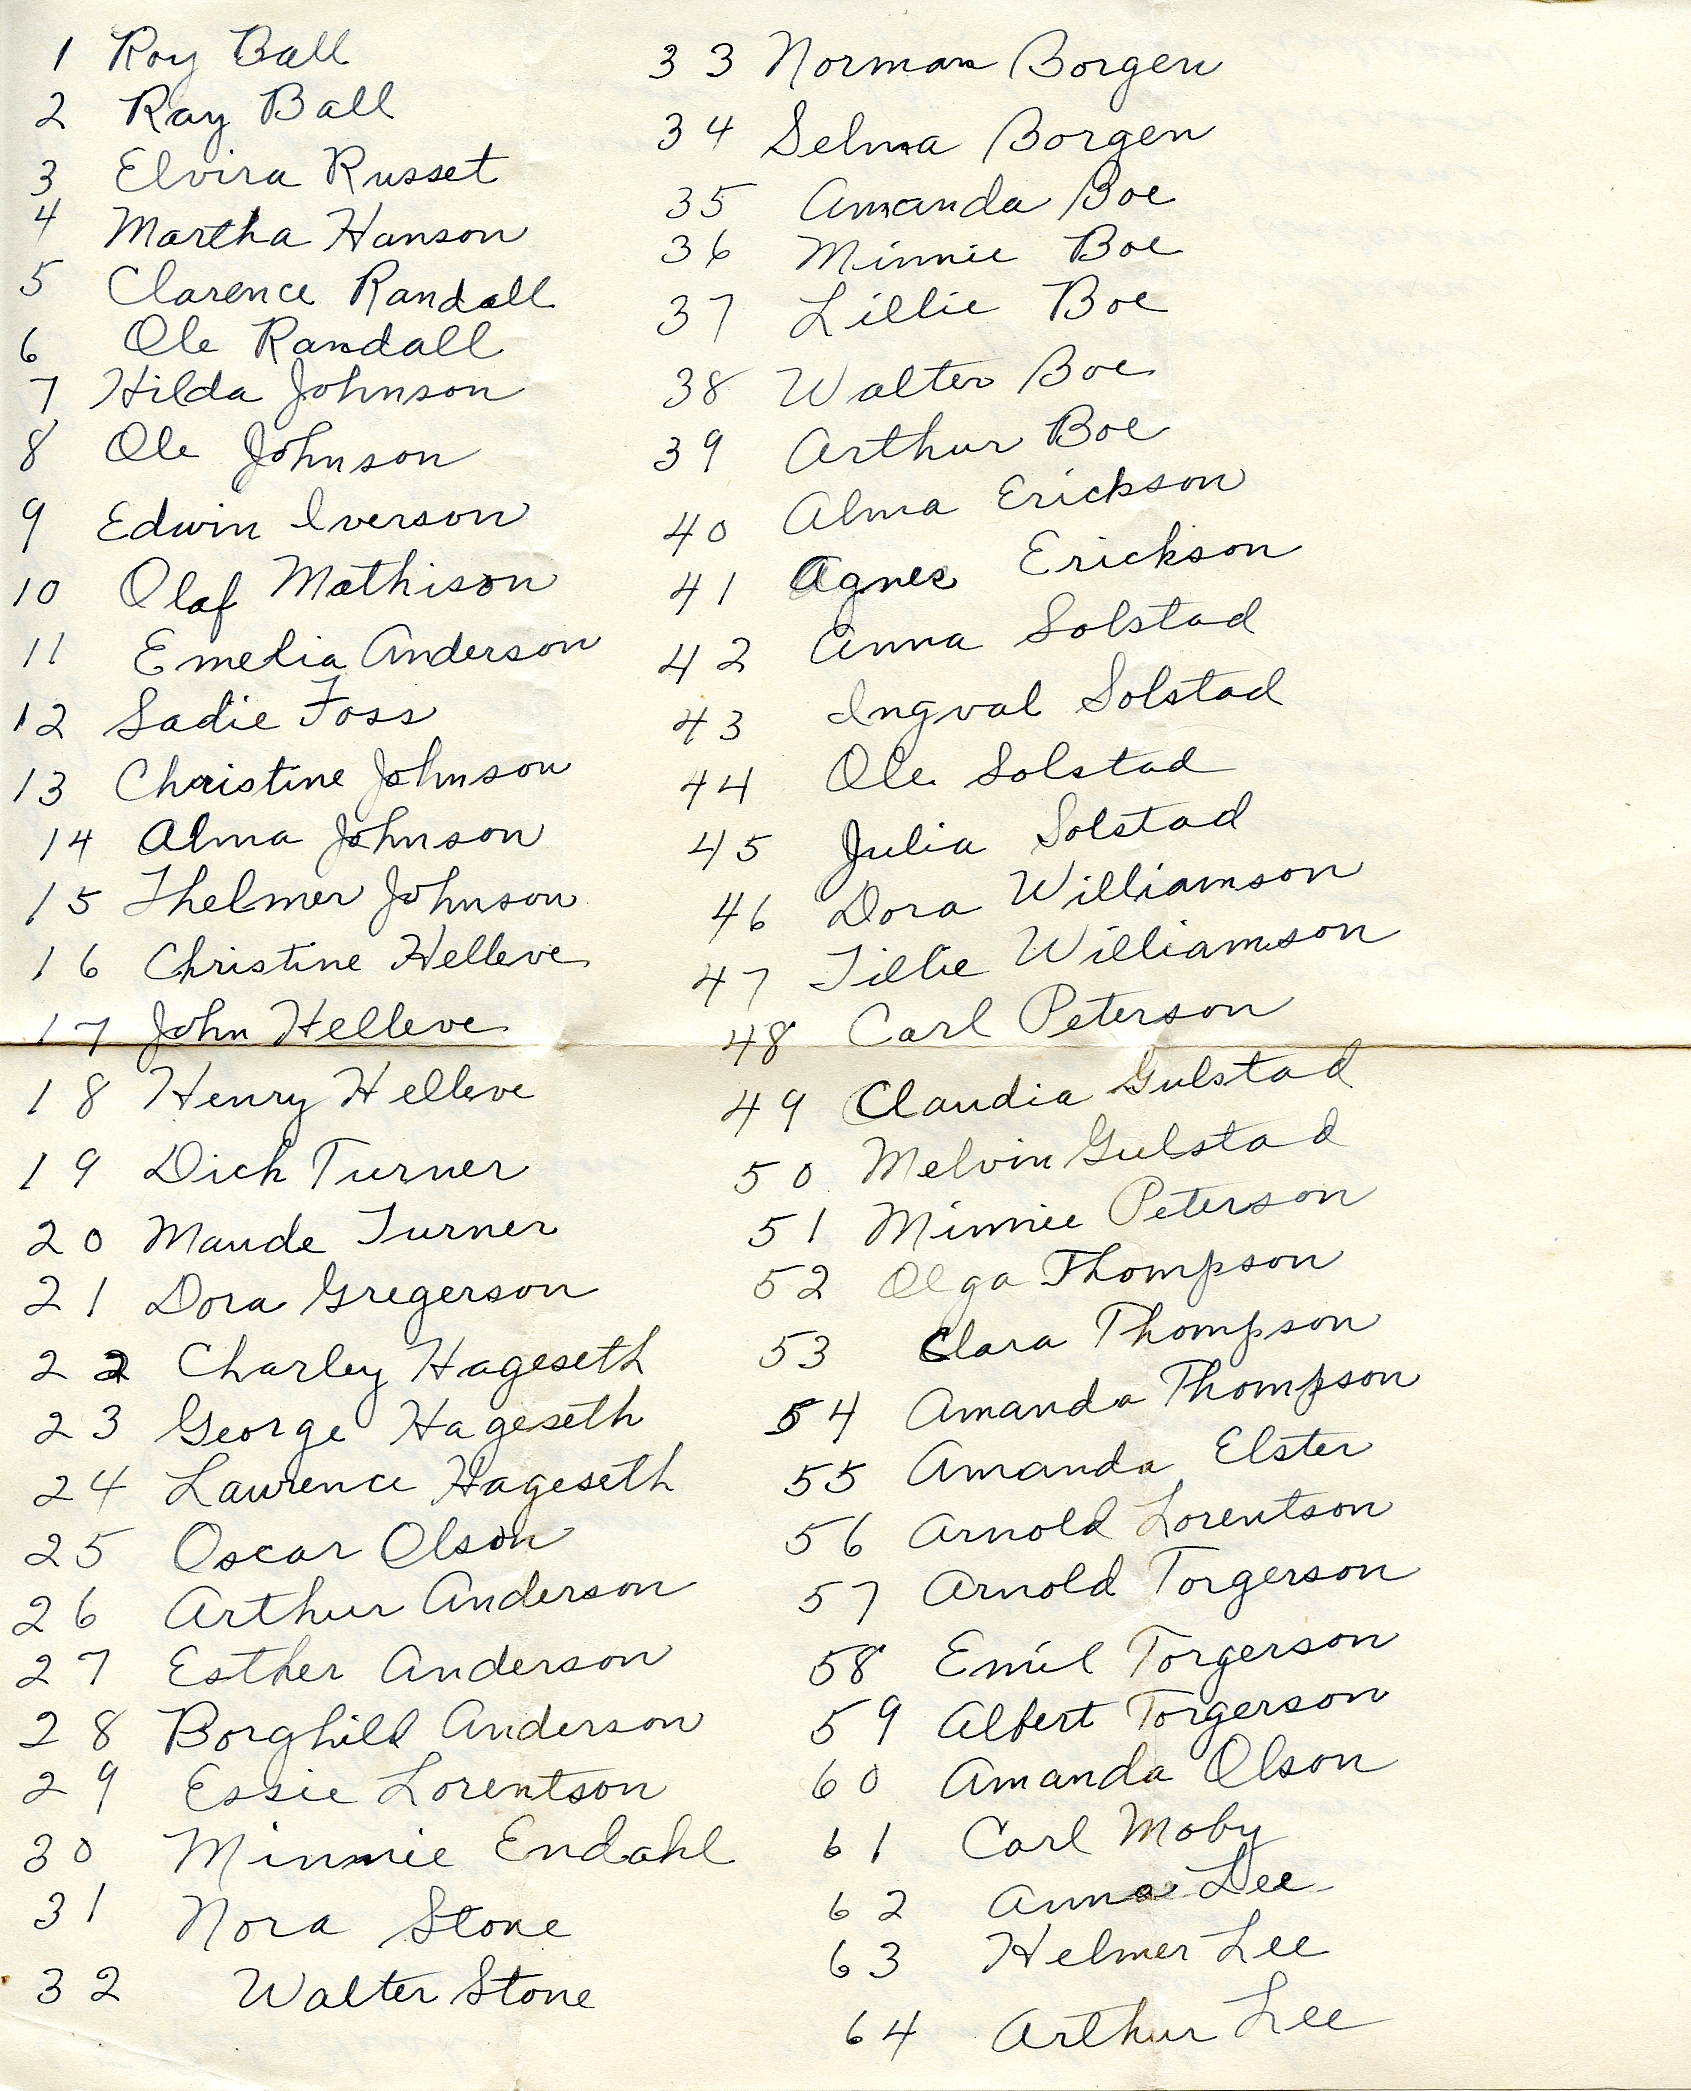 1 Roy Ball
2 Ray Ball
3 Elvira Russet
4 Martha Hanson
5 Clarence Randall
6 Ole Randall
7 Hilda Johnson
8 Ole Johnson
9 Edwin Iverson
10 Olaf Mathison
11 Emelia Anderson
12 Sadie Foss
13 Christine Johnson
14 Alma Johnson
15 Thelmer Johnson
16 Christine Helleve
17 John Helleve
18 Henry Helleve
19 Dick Turner
20 Maude Turner
21 Dora Gregerson
22 Charley Hageseth
23 George Hageseth
24 Lawrence Hageseth
25 Oscar Olson
26 Arthur Anderson
27 Esther Anderson
28 Borghild Anderson
29 Essie Lorentson
30 Minnie Endahl
31 Nora Stone
32 Walter Stone
33 Norman Borgen
34 Selma Borgen
35 Amanda Boe
36 Minnie Boe
37 Lillie Boe
38 Walter Boe
39 Arthur Boe
40 Alma Erickson
41 Agnes Erickson
42 Anna Solstad
43 Ingval Solstad
44 Ole Solstad
45 Julia Solstad
46 Dora Williamson
47 Tillie Williamson
48 Carl Peterson
49 Claudia Gulstad
50 Melvin Gulstad
51 Minnie Peterson
52 Olga Thompson
53 Clara Thompson
54 Amanda Thompson
55 Amanda Elster
56 Arnold Lorentson
57 Arnold Torgerson
58 Emil Torgerson
59 Albert Torgerson
60 Amanda Olson
61 Carl Moby
62 Anna Lee
63 Helmer Lee
64 Arthur Lee